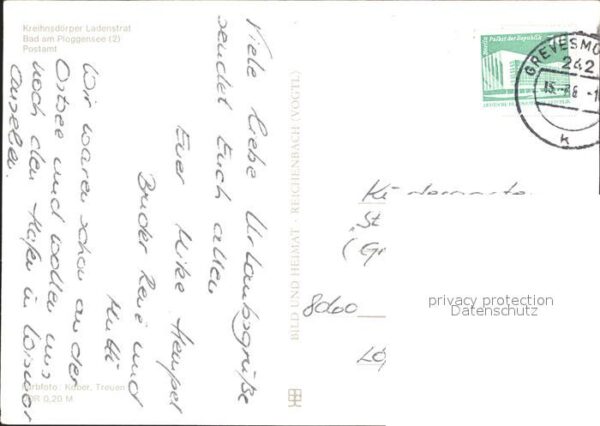 Kreihnsdörper Ladenstrat
Bad am Ploggensee (2)
Postamt
Viele liebe Urlaubsgrüße
sendet Euch allen
Euer Mike Hempel
Bruder René und
Mutti
Wir waren schon an der
Ostsee und wollen uns
noch den Hafen in Wismar
ansehen.
Farbfoto: Kober, Treuen
DDR 0,20 M
BILD UND HEIMAT · REICHENBACH (VOGTL)
Berlin Palast der Republik
GREVESMÜ
242
k
St
(Gr
8060
privacy protection
Datenschutz